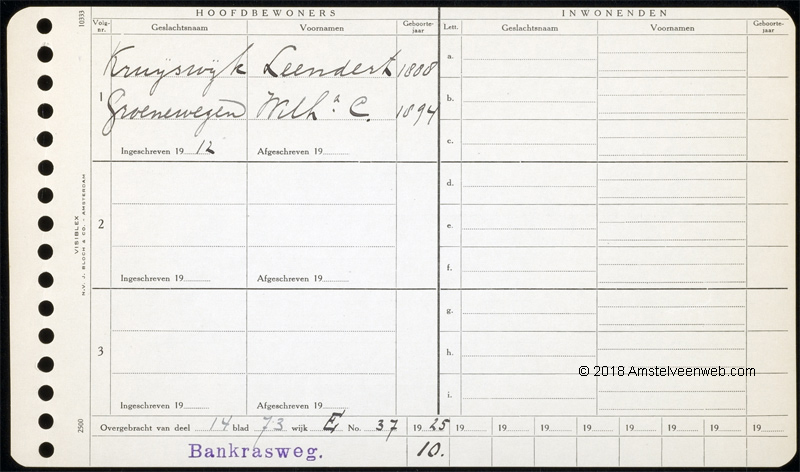 HOOFDBEWONERS
INWONENDEN
Volg-nr. Geslachtsnaam Voornamen Geboorte-jaar Lett. Geslachtsnaam Voornamen Geboorte-jaar
1
Kruijswijk Leendert 1888
Groenewegen Wilh.a C. 1894
Ingeschreven 19 12 Afgeschreven 19
2
Ingeschreven 19 Afgeschreven 19
3
Ingeschreven 19 Afgeschreven 19
a.
b.
c.
d.
e.
f.
g.
h.
i.
Overgebracht van deel 14 blad 73 wijk E No. 37 19 25 19 19 19 19 19 19 19 19
Bankrasweg. 10.
10333
VISIBLEX
N.V. J. BLOCH & CO. - AMSTERDAM
2500
© 2018 Amstelveenweb.com